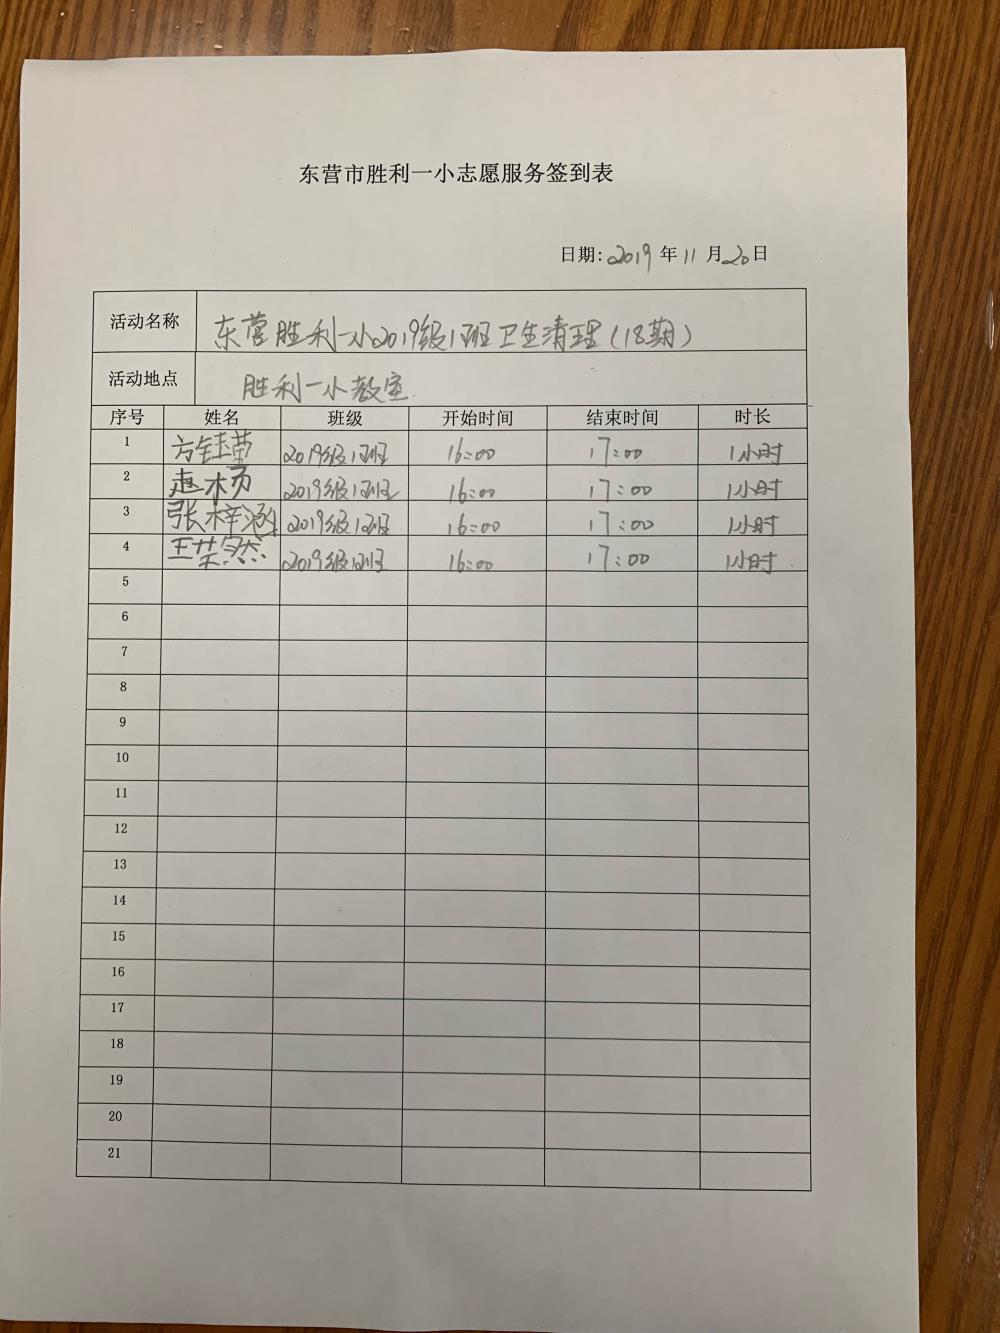 东营市胜利一小志愿服务签到表
日期: 2019 年 11 月 20 日
活动名称 东营胜利一小2019级1班卫生清理(18期)
活动地点 胜利一小教室
序号 姓名 班级 开始时间 结束时间 时长
1 方钰莹 2019级1班 16:00 17:00 1小时
2 赵杨 2019级1班 16:00 17:00 1小时
3 张梓涵 2019级1班 16:00 17:00 1小时
4 王 然 2019级1班 16:00 17:00 1小时
5
6
7
8
9
10
11
12
13
14
15
16
17
18
19
20
21